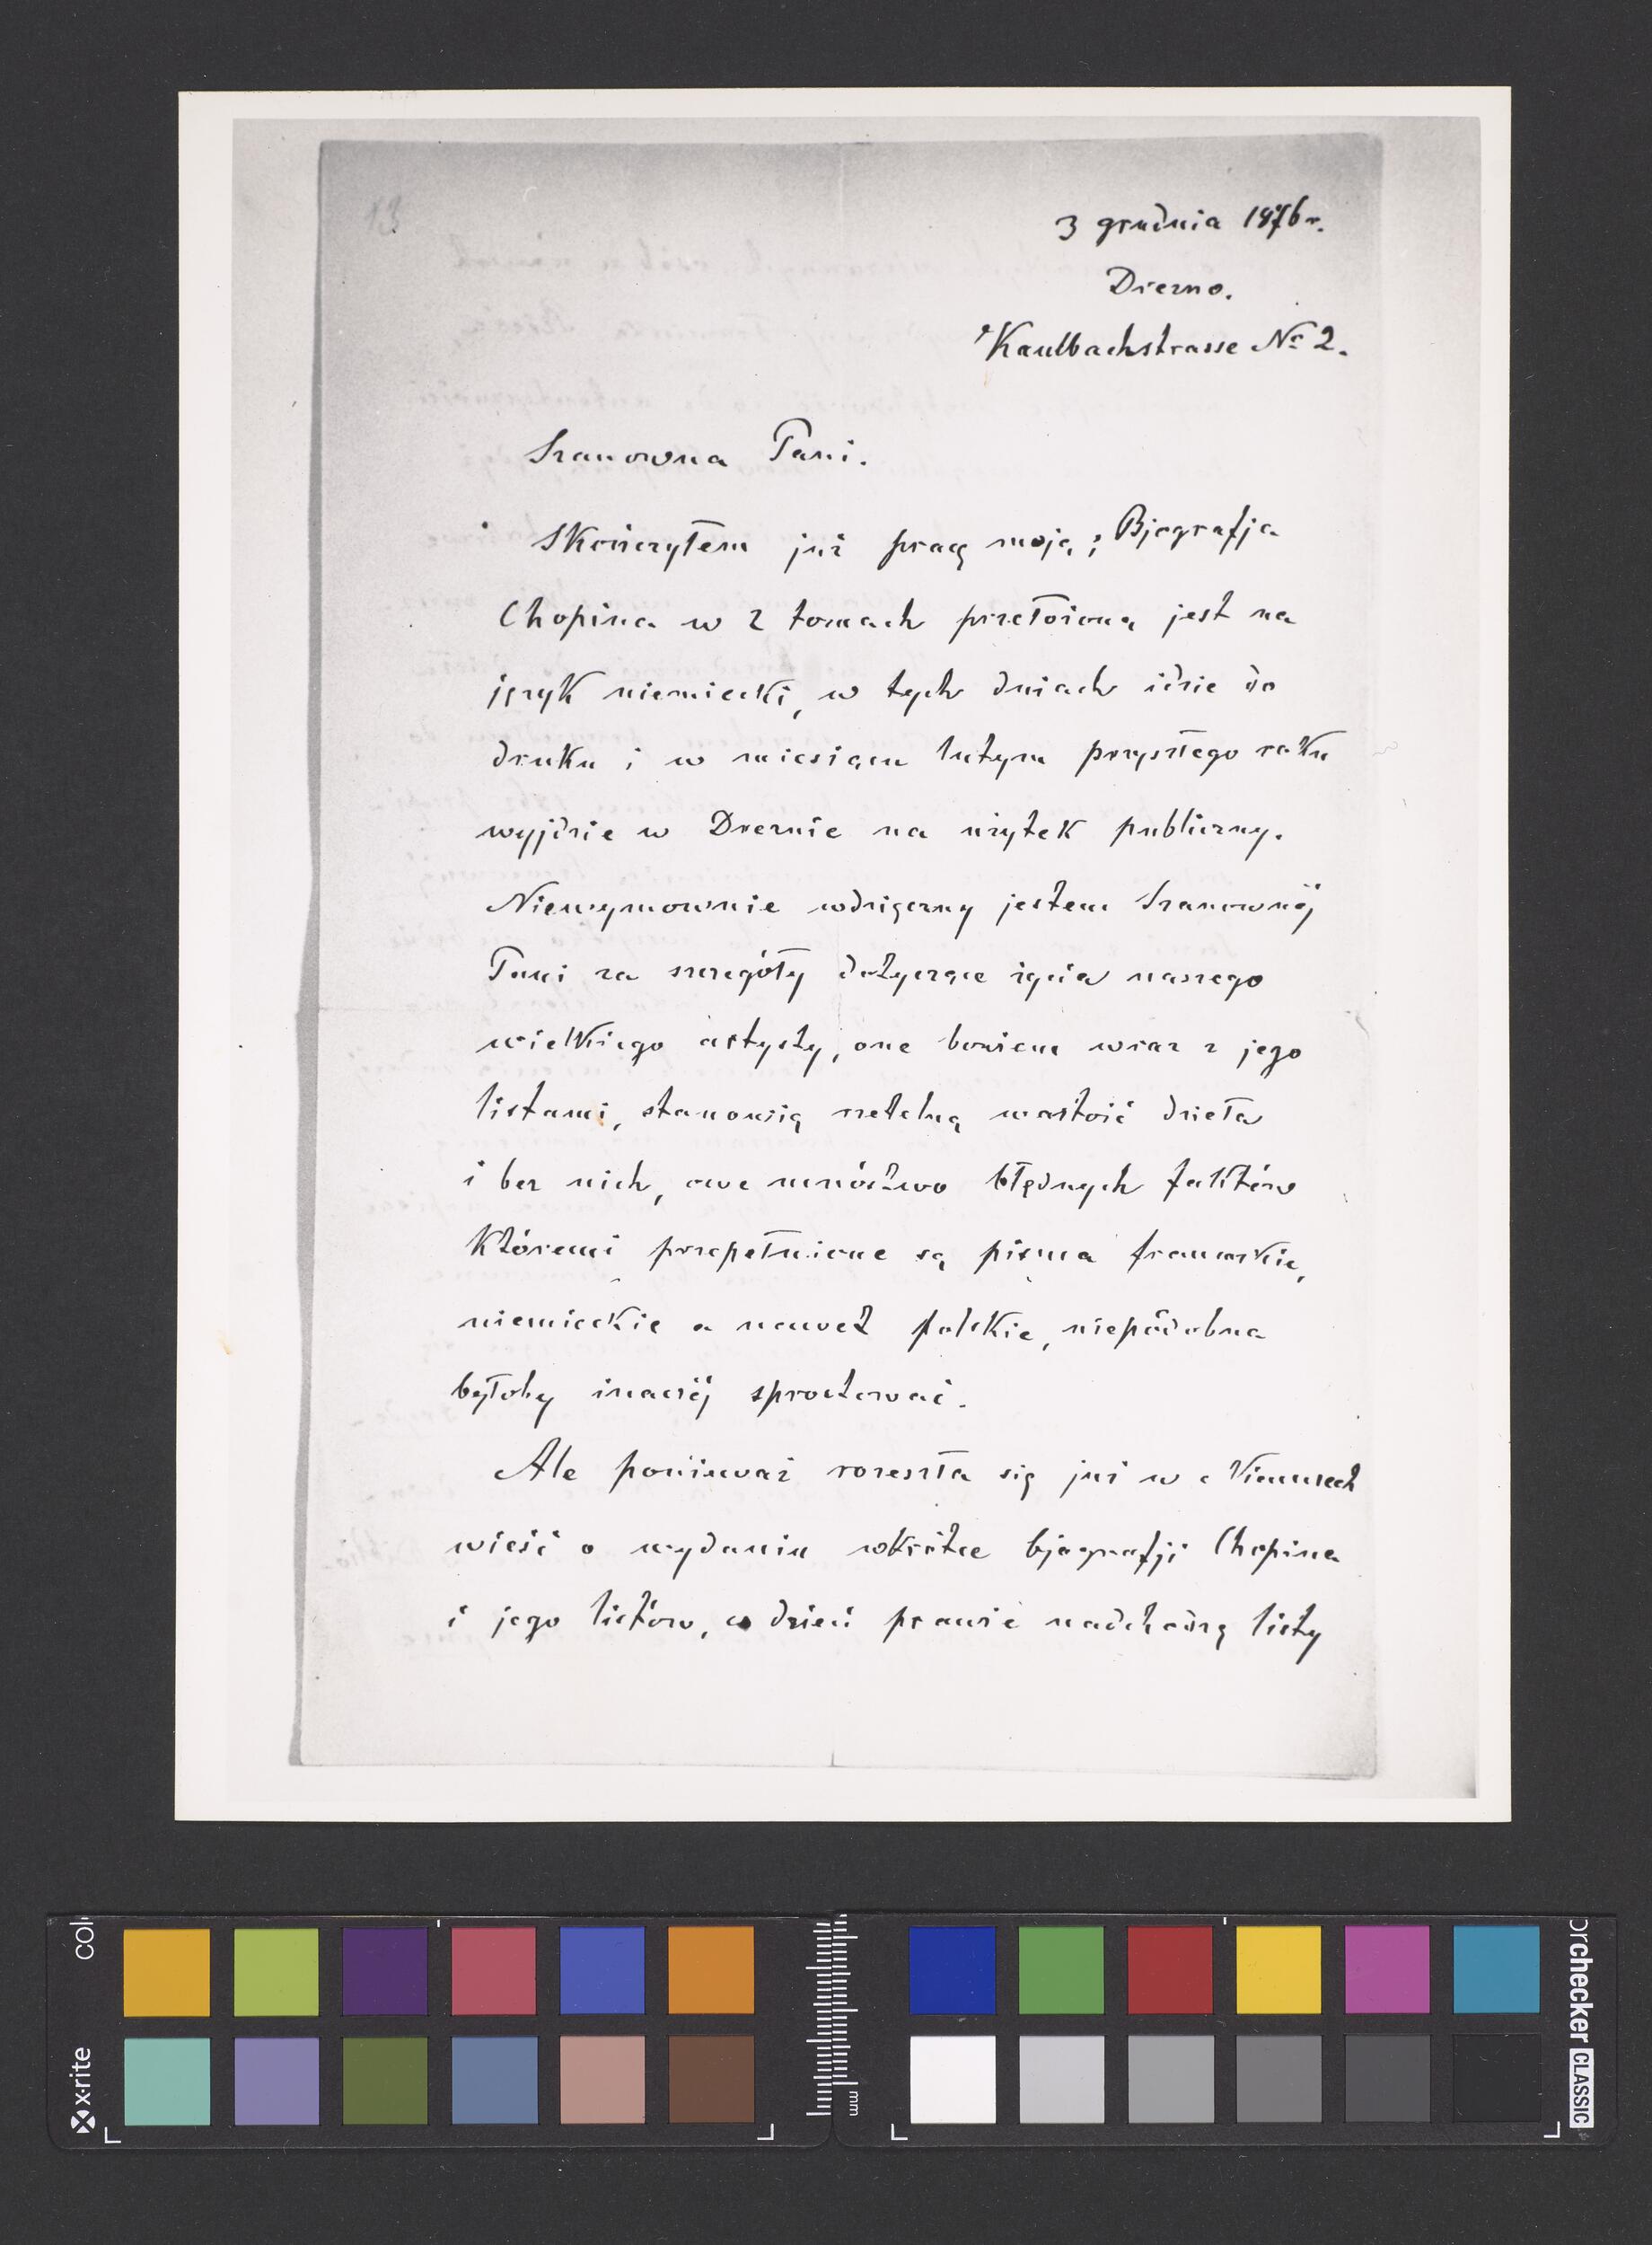 13
3 grudnia 1876 r.
Drezno.
Kaulbachstrasse No 2.
Szanowna Pani.
Skończyłem już pracę moją; Bjografja
Chopina w 2 tomach przełożoną jest na
język niemiecki, w tych dniach idzie do
druku i w miesiącu lutym przyszłego roku
wyjdzie w Dreznie na użytek publiczny.
Niewymownie wdzięczny jestem Szanownéj
Pani za szczegóły dotyczące życia naszego
wielkiego artysty, one bowiem wraz z jego
listami, stanowią rzetelną wartość dzieła
i bez nich, owe mnóstwo błędnych faktów
któremi przepełnione są pisma francuskie,
niemieckie a nawet polskie, niepodobna
byłoby inaczéj sprostować.
Ale ponieważ rozeszła się już w Niemczech
wieść o wydaniu wkrótce bjografji Chopina
i jego listów, co dzień prawie nadchodzą listy
x·rite
col
mm
orchecker CLASSIC